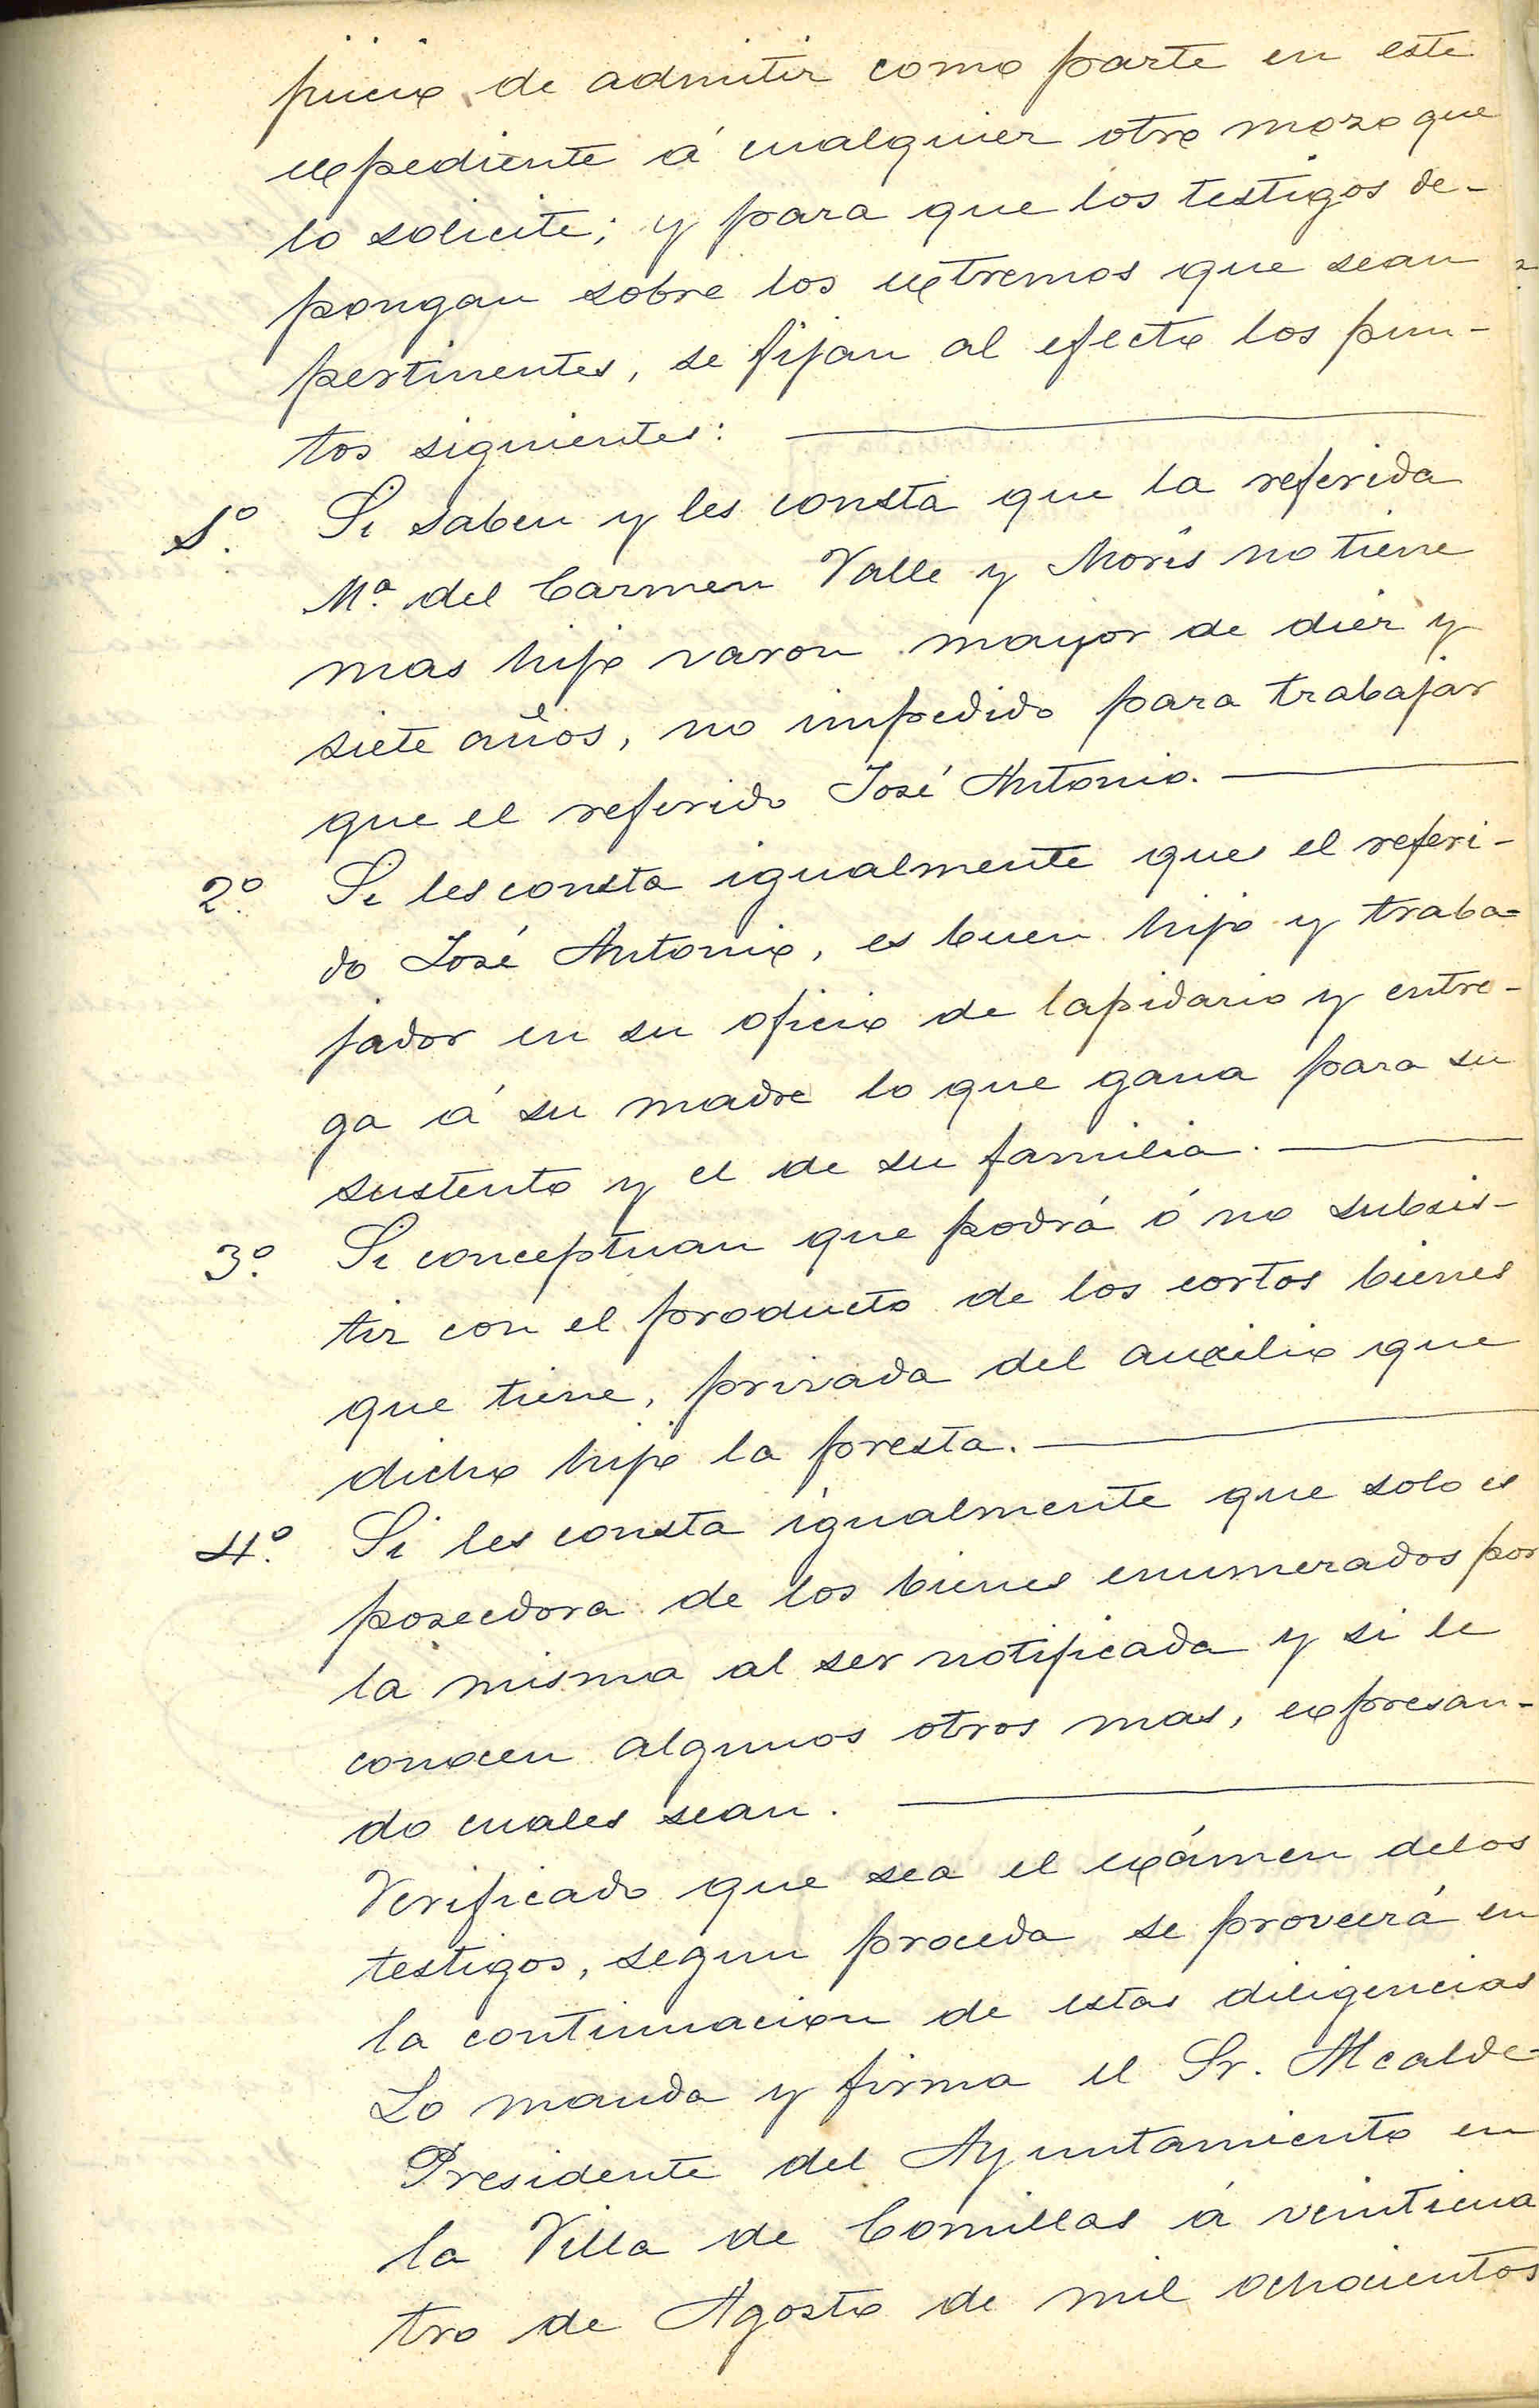 juicio de admitir como parte en este
expediente á cualquier otro mozo que
lo solicite; y para que los testigos de-
pongan sobre los extremos que sean
pertinentes, se fijan al efecto los pun-
tos siguientes:
1º. Si saben y les consta que la referida
Mª. del Carmen Valle y Morís no tiene
mas hijo varon mayor de diez y
siete años, no impedido para trabajar
que el referido José Antonio.
2º. Si les consta igualmente que el referi-
do José Antonio, es buen hijo y traba=
jador en su oficio de lapidario y entre-
ga á su madre lo que gana para su
sustento y el de su familia.
3º. Si conceptuan que podrá ó no subsis-
tir con el producto de los cortos bienes
que tiene, privada del auxilio que
dicho hijo la presta.
4º. Si les consta igualmente que solo es
poseedora de los bienes enumerados por
la misma al ser notificada y si le
conocen algunos otros mas, expresan-
do cuales sean.
Verificado que sea el exámen delos
testigos, segun proceda se proveerá en
la continuacion de estas diligencias
Lo manda y firma el Sr. Alcalde-
Presidente del Ayuntamiento en
la Villa de Comillas á veinticua
tro de Agosto de mil ochocientos